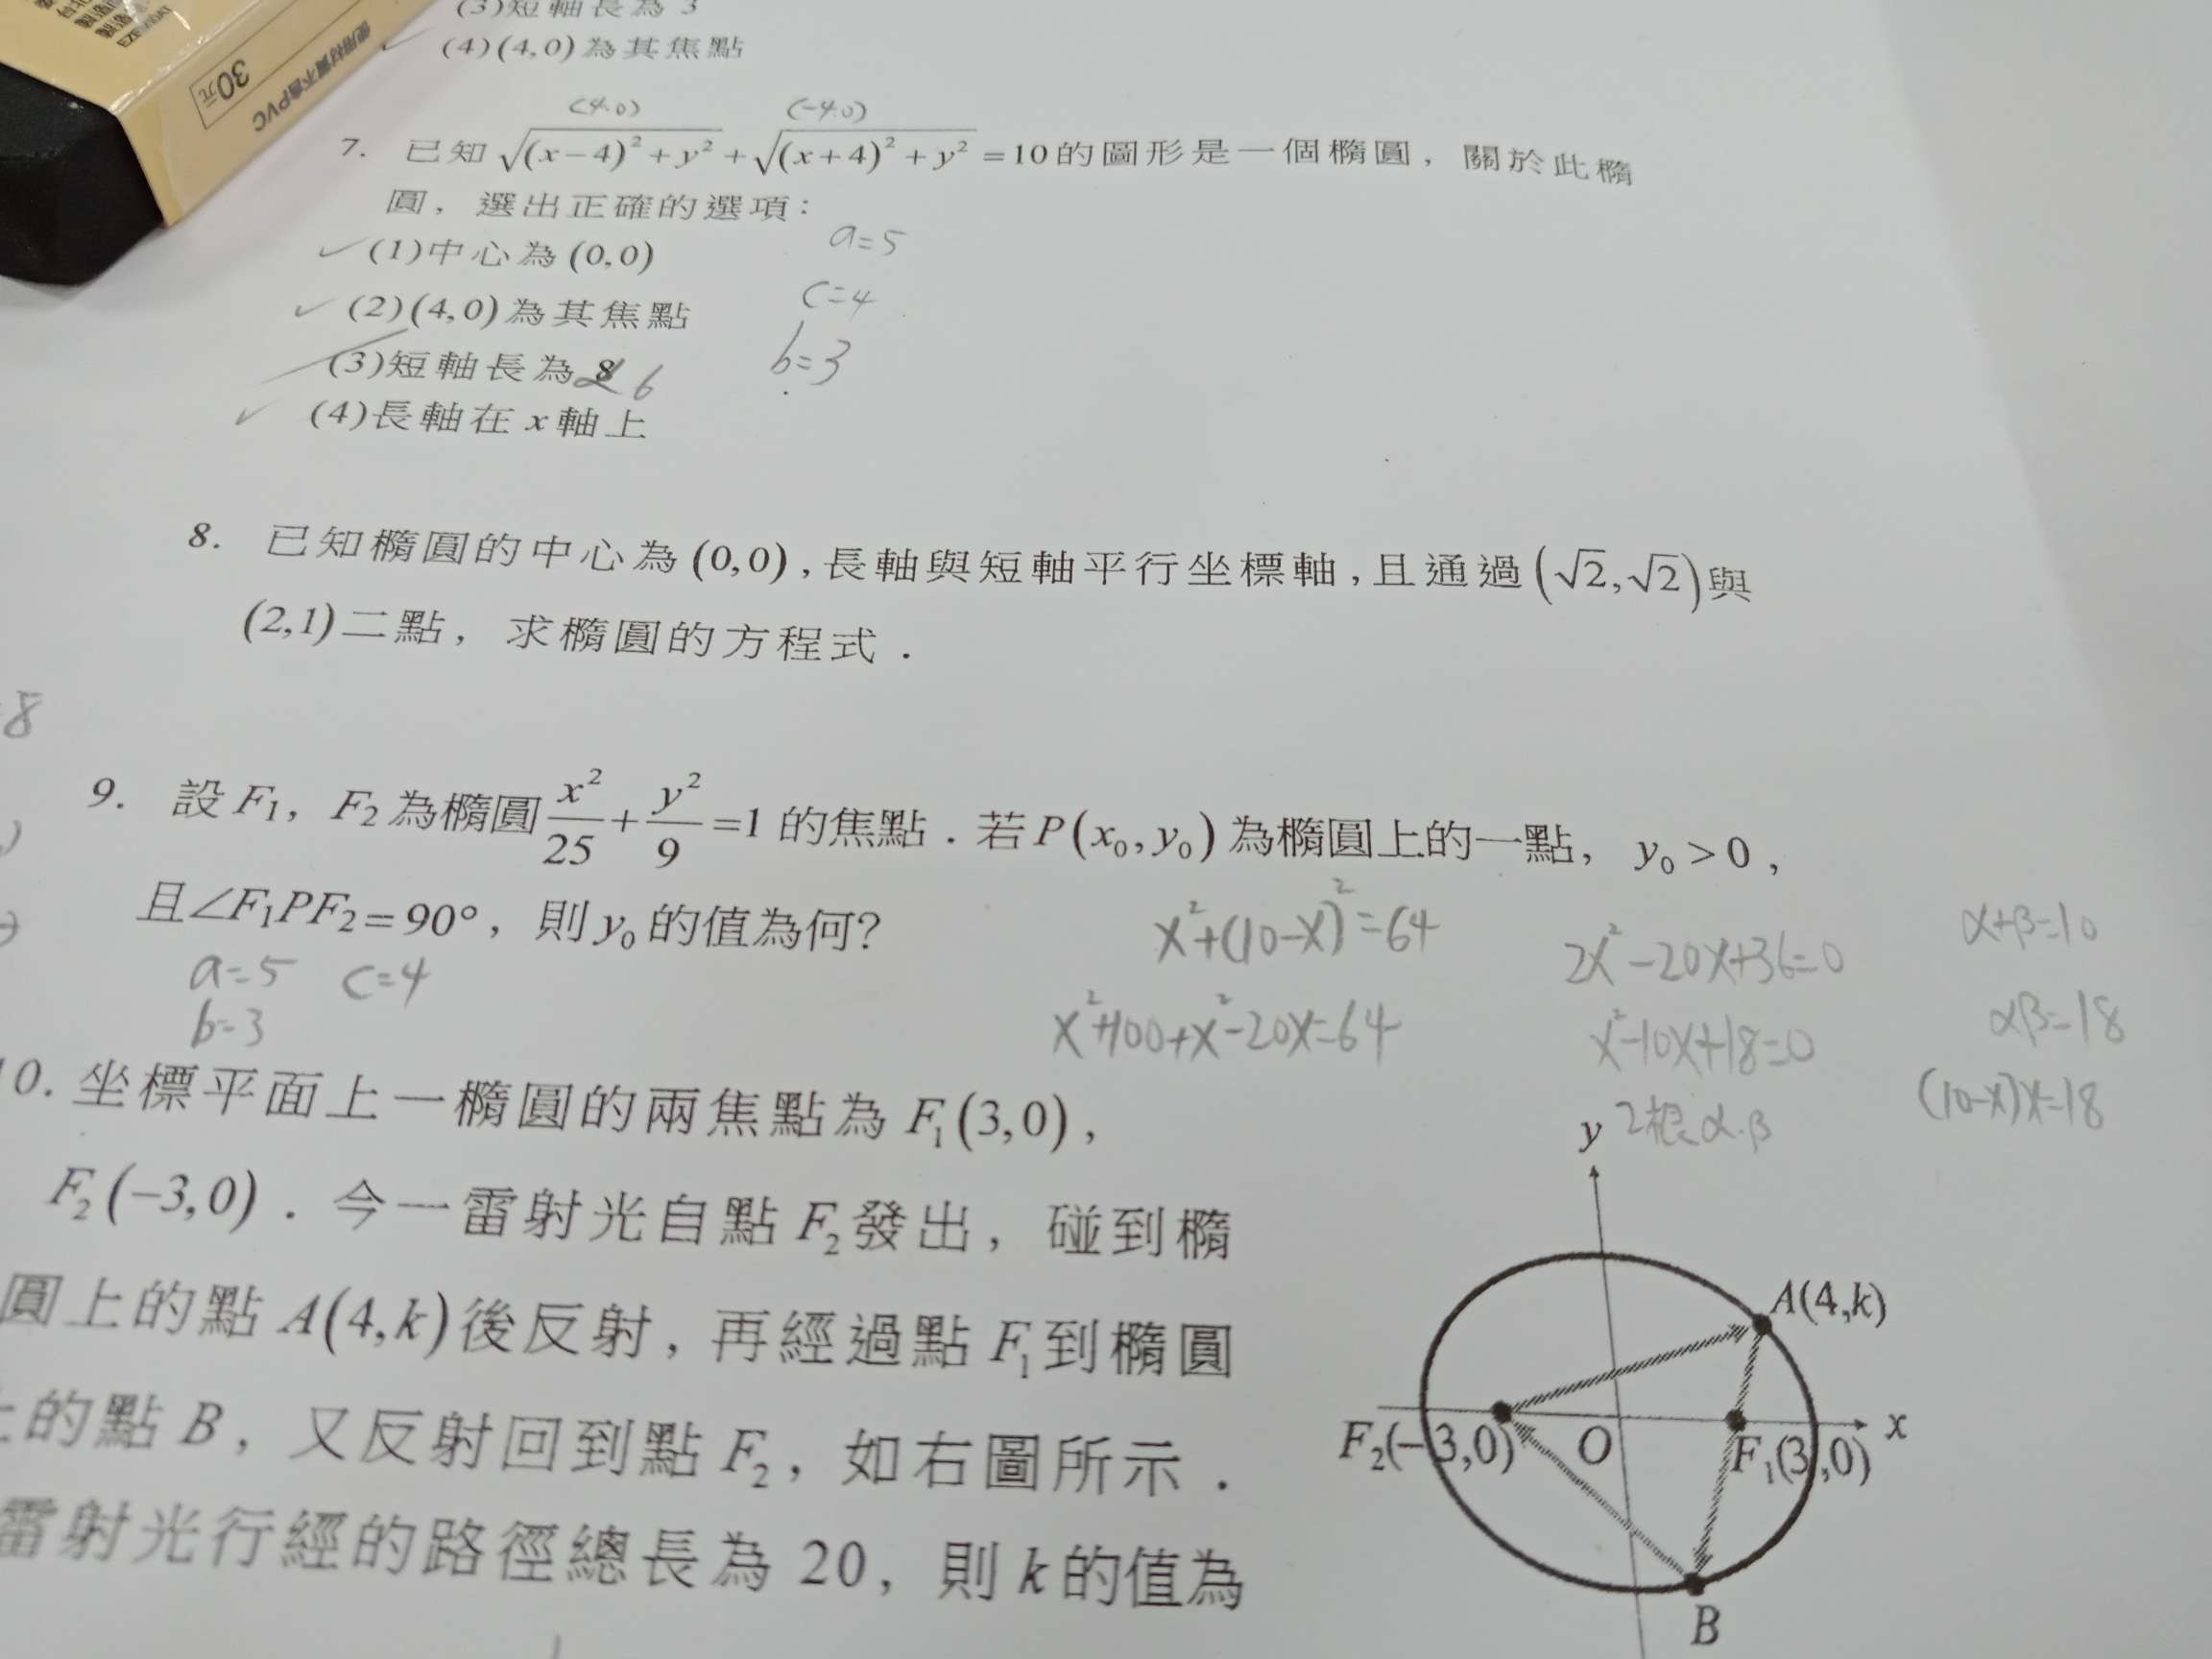 30元
使用材質不含PVC
(3)短軸長為 3
(4)(4,0)為其焦點
(4.0) (-4.0)
7. 已知 √((x-4)²+y²) + √((x+4)²+y²) =10的圖形是一個橢圓，關於此橢
圓，選出正確的選項：
(1)中心為(0,0)
a=5
(2)(4,0)為其焦點
c=4
(3)短軸長為 8 6
b=3
(4)長軸在 x 軸上
8. 已知橢圓的中心為(0,0),長軸與短軸平行坐標軸,且通過(√2,√2)與
(2,1)二點，求橢圓的方程式．
8
9. 設F₁，F₂為橢圓 x²/25 + y²/9 =1 的焦點．若P(x₀,y₀)為橢圓上的一點，y₀>0，
且∠F₁PF₂=90°，則y₀的值為何?
a=5 c=4
b=3
x²+(10-x)²=64
x²+100+x²-20x=64
2x²-20x+36=0
x²-10x+18=0
2根α.β
α+β=10
αβ=18
(10-x)x=18
10. 坐標平面上一橢圓的兩焦點為 F₁(3,0)，
F₂(-3,0)．今一雷射光自點F₂發出，碰到橢
圓上的點A(4,k)後反射，再經過點F₁到橢圓
上的點B，又反射回到點F₂，如右圖所示．
雷射光行經的路徑總長為 20，則k的值為
y
A(4,k)
x
F₂(-3,0)
O
F₁(3,0)
B